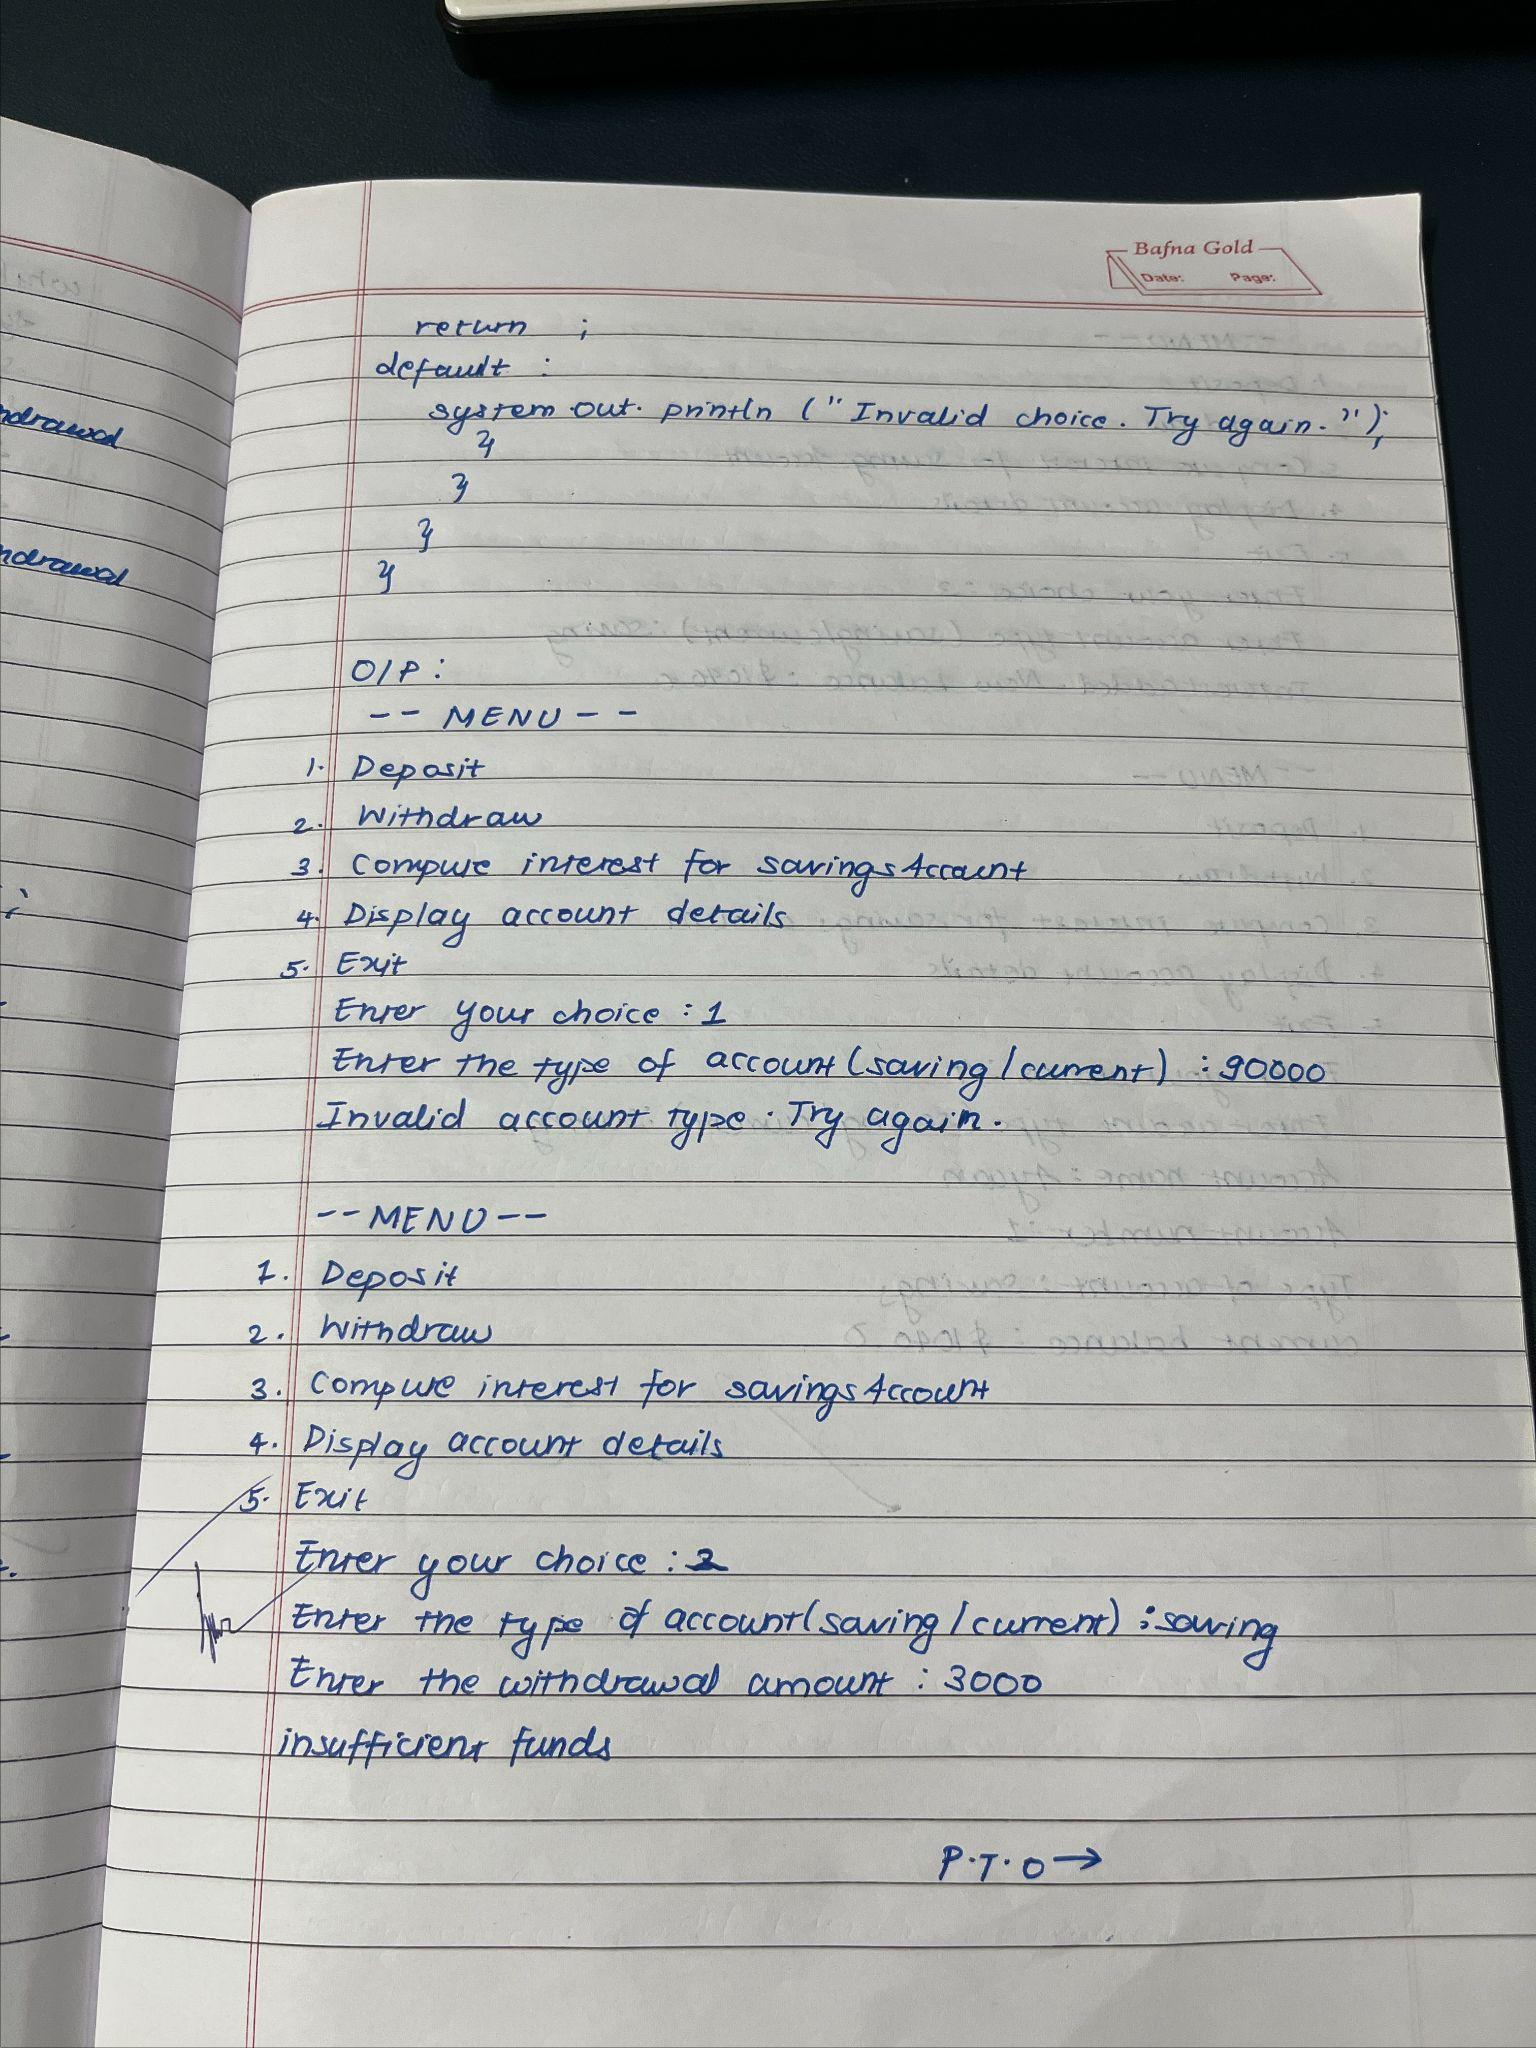 Bafna Gold
Date: Page:
return ;
default :
system out. println (" Invalid choice. Try again. ");
}
}
}
}
O/P :
-- MENU --
1. Deposit
2. Withdraw
3. Compute interest for savingsAccount
4. Display account details
5. Exit
Enter your choice : 1
Enter the type of account (saving / current) : 90000
Invalid account type. Try again.
-- MENU --
1. Deposit
2. Withdraw
3. Compute interest for savingsAccount
4. Display account details
5. Exit
Enter your choice : 2
Enter the type of account (saving / current) : saving
Enter the withdrawal amount : 3000
insufficient funds
P.T.O →